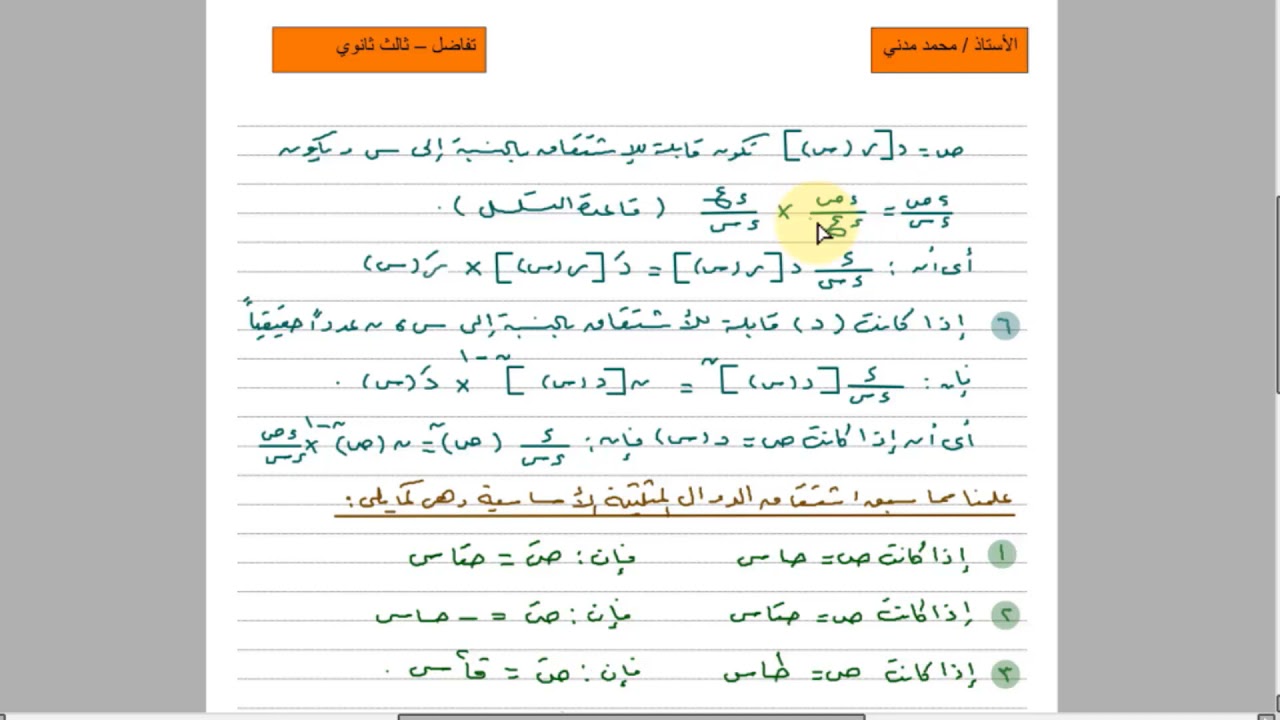 الأستاذ / محمد مدني
تفاضل – ثالث ثانوي
ص = د[ر(س)] تكون قابلة للإشتقاق بالنسبة إلى س ويكون
ءص/ءس = ءص/ءع × ءع/ءس (قاعدة التسلسل).
أى أن : ء/ءس د[ر(س)] = دَ[ر(س)] × رَ(س)
٦ إذا كانت (د) قابلة للأشتقاق بالنسبة إلى س ، ن عدداً حقيقياً
فإن : ء/ءس [د(س)]^ن = ن[د(س)]^(ن-١) × دَ(س) .
أى أن إذا كانت ص = د(س) فإن : ء/ءس (ص)^ن = ن(ص)^(ن-١) × ءص/ءس
علمنا مما سبق اشتقاق الدوال المثلثية الأساسية وهى كما يلى :
١ إذا كانت ص = حاس فإن : صَ = حتاس
٢ إذا كانت ص = حتاس فإن : صَ = – حاس
٣ إذا كانت ص = طاس فإن : صَ = قا٢س .